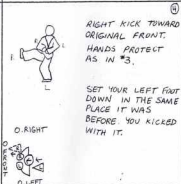 4
RIGHT KICK TOWARD
ORIGINAL FRONT.
HANDS PROTECT
AS IN #3.
R.
L
R.
L
SET YOUR LEFT FOOT
DOWN IN THE SAME
PLACE IT WAS
BEFORE YOU KICKED
WITH IT.
O.RIGHT
O.FRONT
O.LEFT